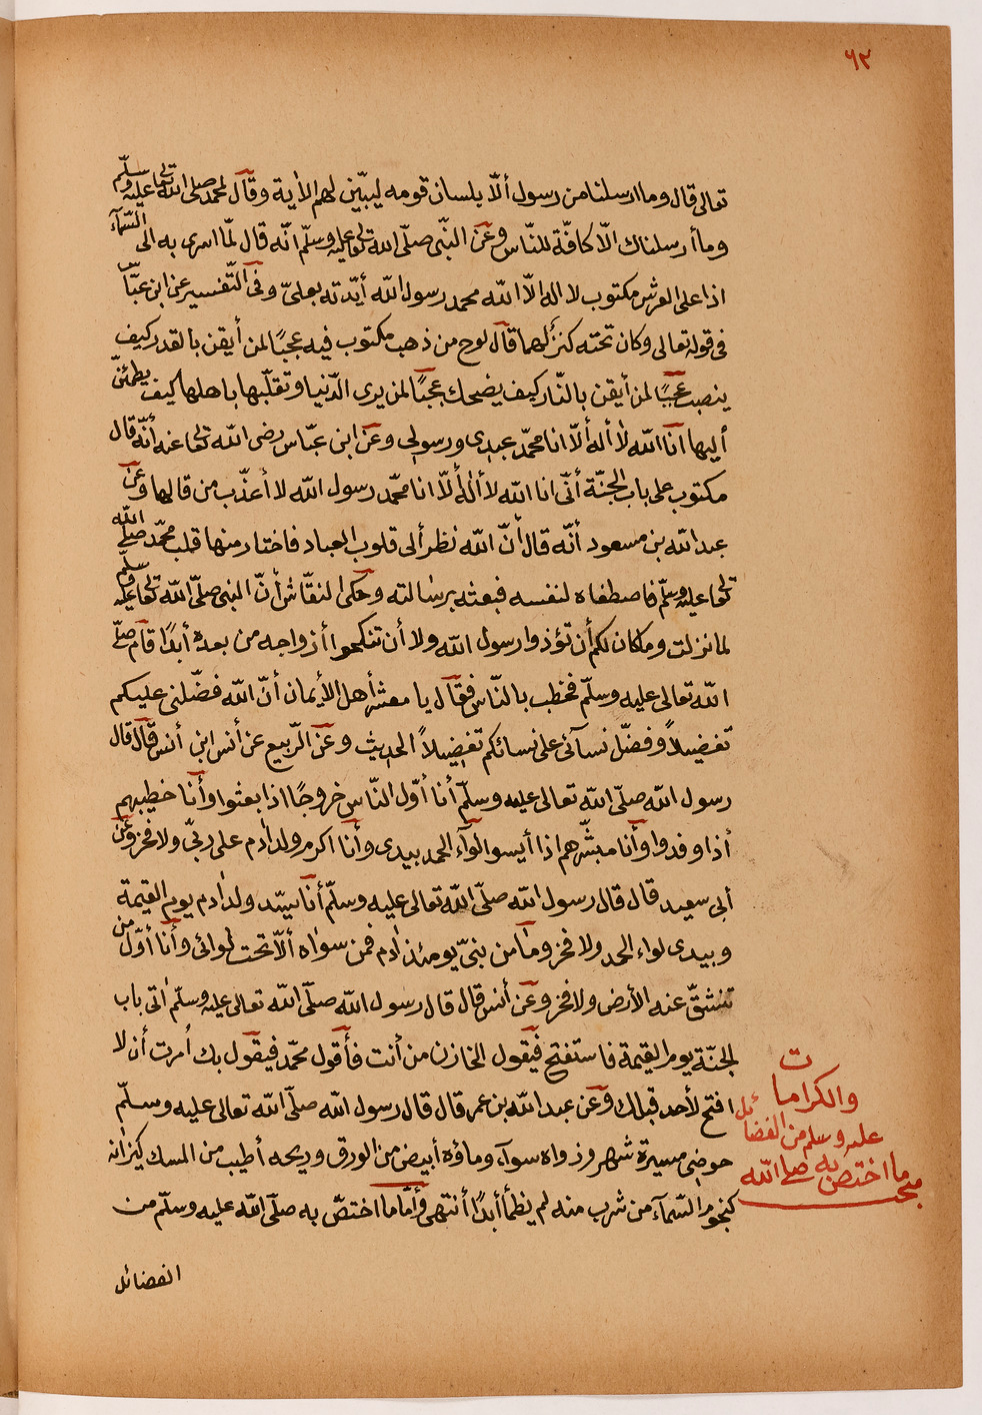 ٦٢
تعالى قال وما ارسلنا من رسول ألّا بلسان قومه ليبيّن لهم الأية وقال لمحمد صلى الله تعالى عليه وسلّم
وما أرسلناك الّا كافّة للنّاس وعن النّبى صلّى الله تعالى عليه وسلّم انّه قال لمّا اسرى به الى السّمآء
اذا على العرش مكتوب لا اله الّا الله محمد رسول الله أيّدته بعلىّ وفى التّفسير عن ابن عبّاس
فى قوله تعالى وكان تحته كنزٌ لهما قال لوح من ذهب مكتوب فيه عجبًا لمن أيقن بالقدر كيف
ينصب عجبًا لمن أيقن بالنّار كيف يضحك عجبًا لمن يرى الدّنيا وتقلّبها باهلها كيف يطمئنّ
أليها أنا الله لا أله ألّا انا محمّد عبدى ورسولى وعن ابن عبّاس رضى الله تعالى عنه أنّه قال
مكتوب على باب الجنّة أنّى انا الله لا أله ألّا انا محمّد رسول الله لا أعذّب من قالها وعن
عبد الله بن مسعود أنّه قال أنّ الله نظر ألى قلوب العباد فاختار منها قلب محمّد صلى الله
تعالى عليه وسلّم فاصطفاه لنفسه فبعثه برسالته وحكى النقّاش أنّ النبى صلّى الله تعالى عليه وسلّم
لما نزلت وماكان لكم أن تؤذوا رسول الله ولا أن تنكحوا أزواجه من بعده أبدًا قام صلّى
الله تعالى عليه وسلّم فخطب بالنّاس فقال يا معشر أهل الأيمان أنّ الله فضّلنى عليكم
تفضيلاً وفضّل نسآئى على نسائكم تفضيلاً الحديث وعن الرّبيع عن أنس ابن أنس قال قال
رسول الله صلّى الله تعالى عليه وسلّم أنا أوّل النّاس خروجًا اذا بعثوا وأنا خطيبهم
أذا وفدوا وأنا مبشّرهم اذا أيسوا لوآء الحمد بيدى وأنا اكرم ولد أدم على ربّى ولا فخر وعن
أبى سعيد قال قال رسول الله صلّى الله تعالى عليه وسلّم أنا سيّد ولد أدم يوم القيمة
وبيدى لواء الحمد ولا فخر وما من نبىّ يومئذ أدم فمن سواه ألّا تحت لوائى وأنا أوّل من
تنشقّ عنه الأرض ولا فخر وعن أنس قال قال رسول الله صلّى الله تعالى عليه وسلّم أتى باب
الجنّة يوم القيمة فاستفتح فيقول الخازن من أنت فأقول محمّد فيقول بك أمرت أن لا
افتح لأحد قبلك وعن عبد الله بن عمر قال قال رسول الله صلّى الله تعالى عليه وسلّم
حوضى مسيرة شهر وزواه سوآء وماؤه أبيض من الورق وريحه أطيب من المسك كيزانه
كنجوم السّمآء من شرب منه لم يظمأ أبدًا أنتهى وأمّا ما اختصّ به صلّى الله عليه وسلّم من
الفضائل
والكرامات
عليه وسلم من الفضائل
ما اختص به صلى الله